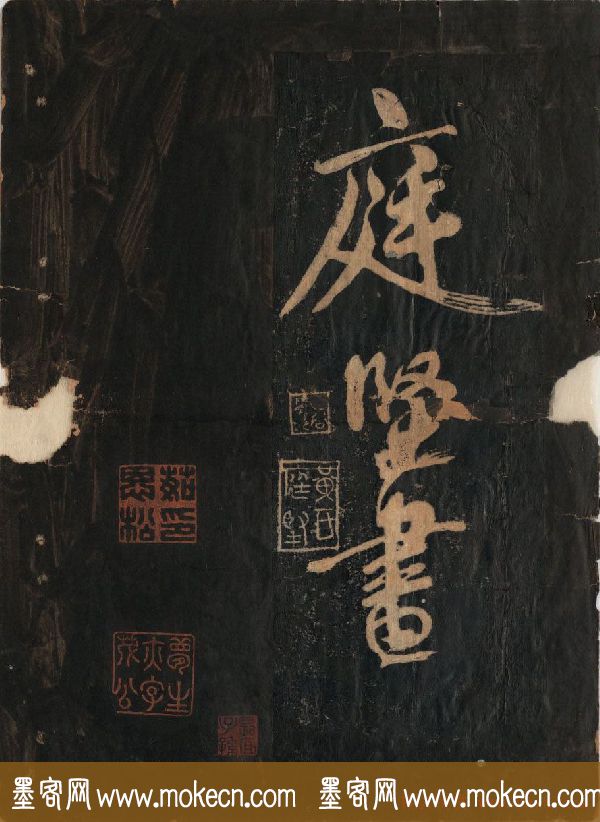 庭堅書
黃氏
庭堅
茹印
愚松
夢生
大字
墨客网 www.mokecn.com 墨客网 www.mokecn.com